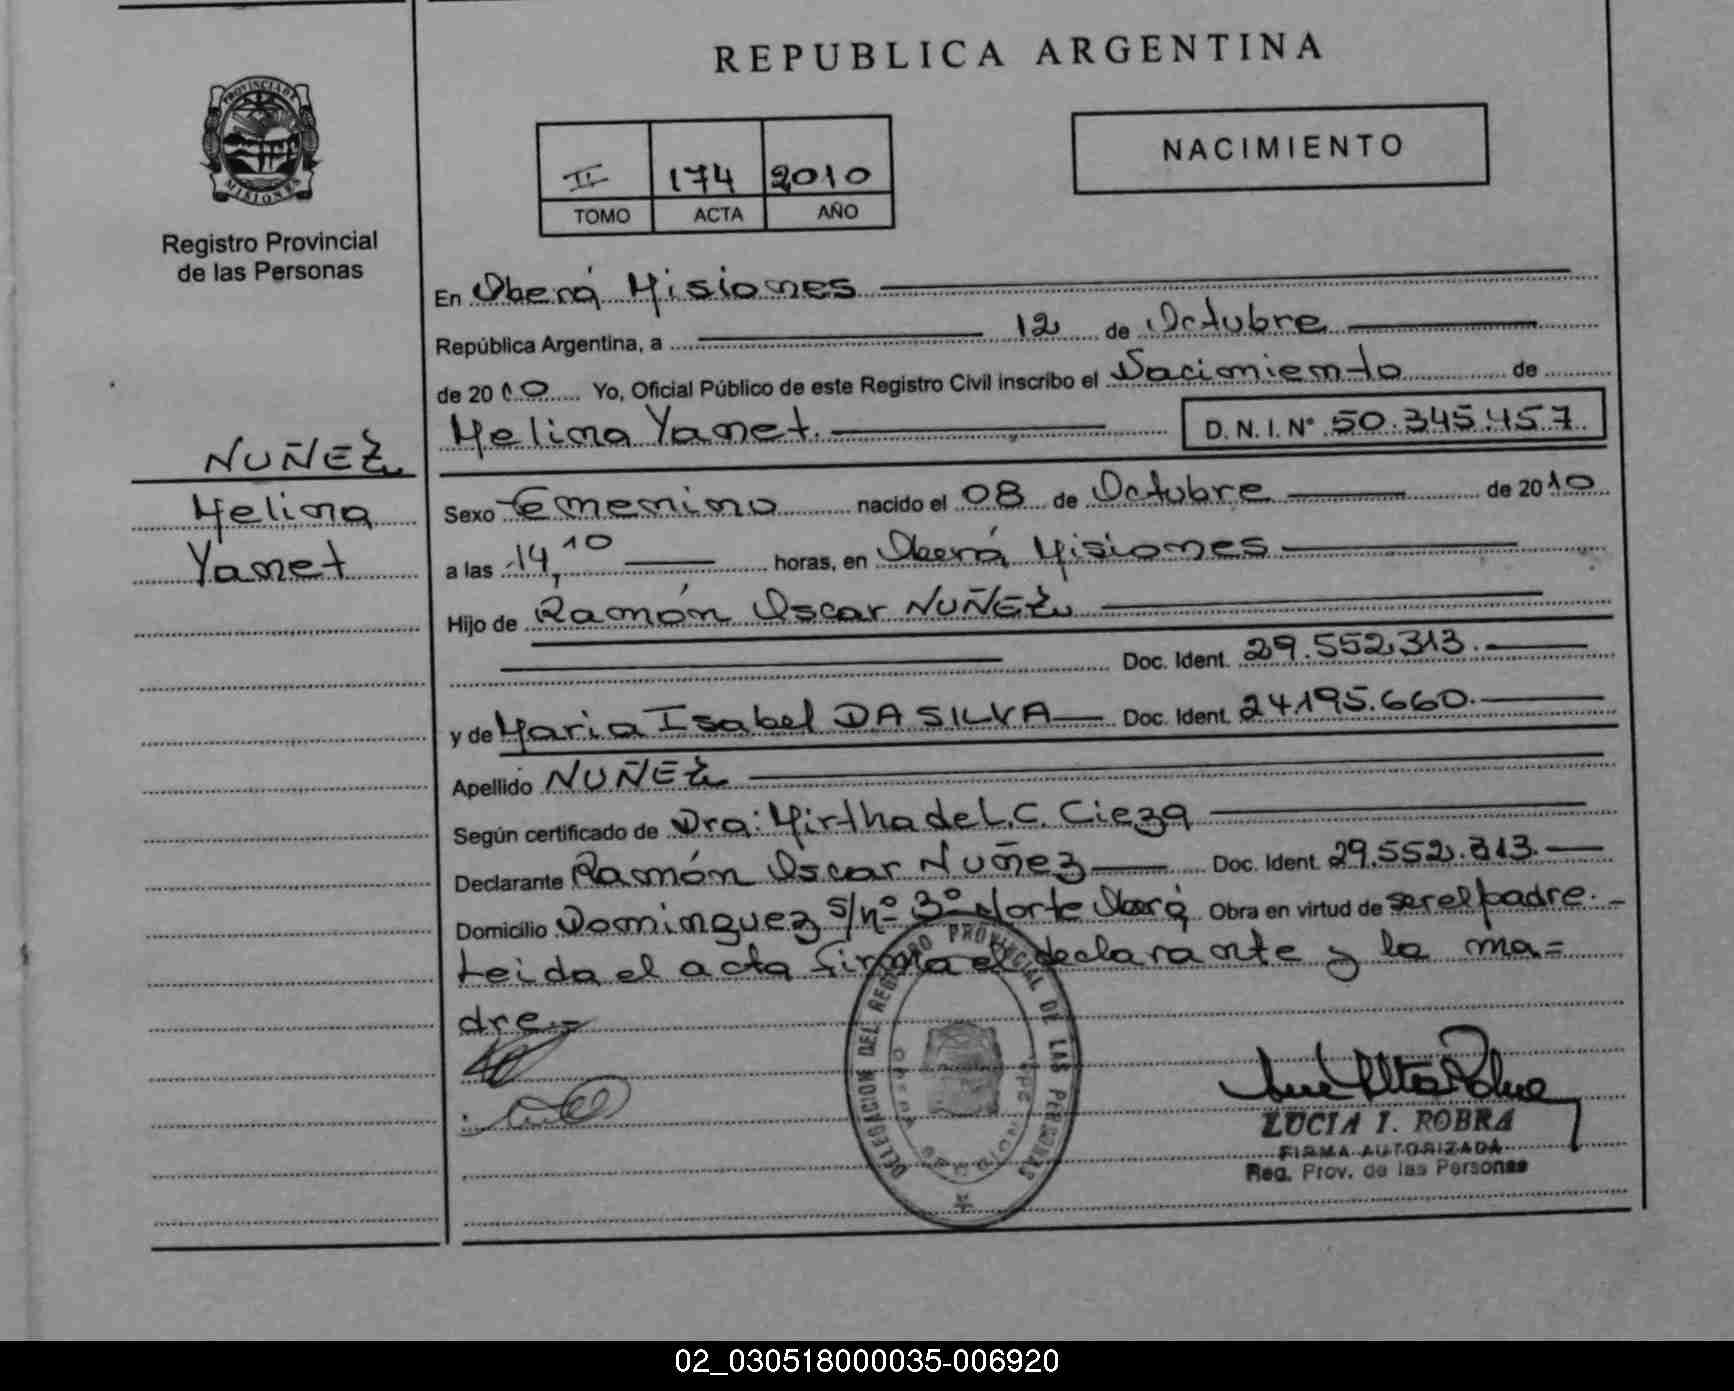 REPUBLICA ARGENTINA
PROVINCIA DE
MISIONES
Registro Provincial
de las Personas
II 174 2010
TOMO ACTA AÑO
NACIMIENTO
NUÑEZ
Melina
Yanet
En Oberá Misiones
República Argentina, a 12 de Octubre
de 2010 Yo, Oficial Público de este Registro Civil inscribo el Nacimiento de
Melina Yanet. D. N. I. N° 50.345.457
Sexo Femenino nacido el 08 de Octubre de 2010
a las 14,10 horas, en Oberá Misiones
Hijo de Ramón Oscar NUÑEZ
Doc. Ident. 29.552.313.
y de Maria Isabel DA SILVA Doc. Ident. 24.195.660.
Apellido NUÑEZ
Según certificado de Dra: Mirtha del C. Cieza
Declarante Ramón Oscar Nuñez Doc. Ident. 29.552.313.
Domicilio Dominguez s/nº 3º Norte Oberá Obra en virtud de ser el padre.-
Leida el acta firma el declarante y la ma=
dre.-
DELEGACION DEL REGISTRO PROVINCIAL DE LAS PERSONAS
OBERA
LUCIA I. ROBRA
FIRMA AUTORIZADA
Reg. Prov. de las Personas
02_030518000035-006920